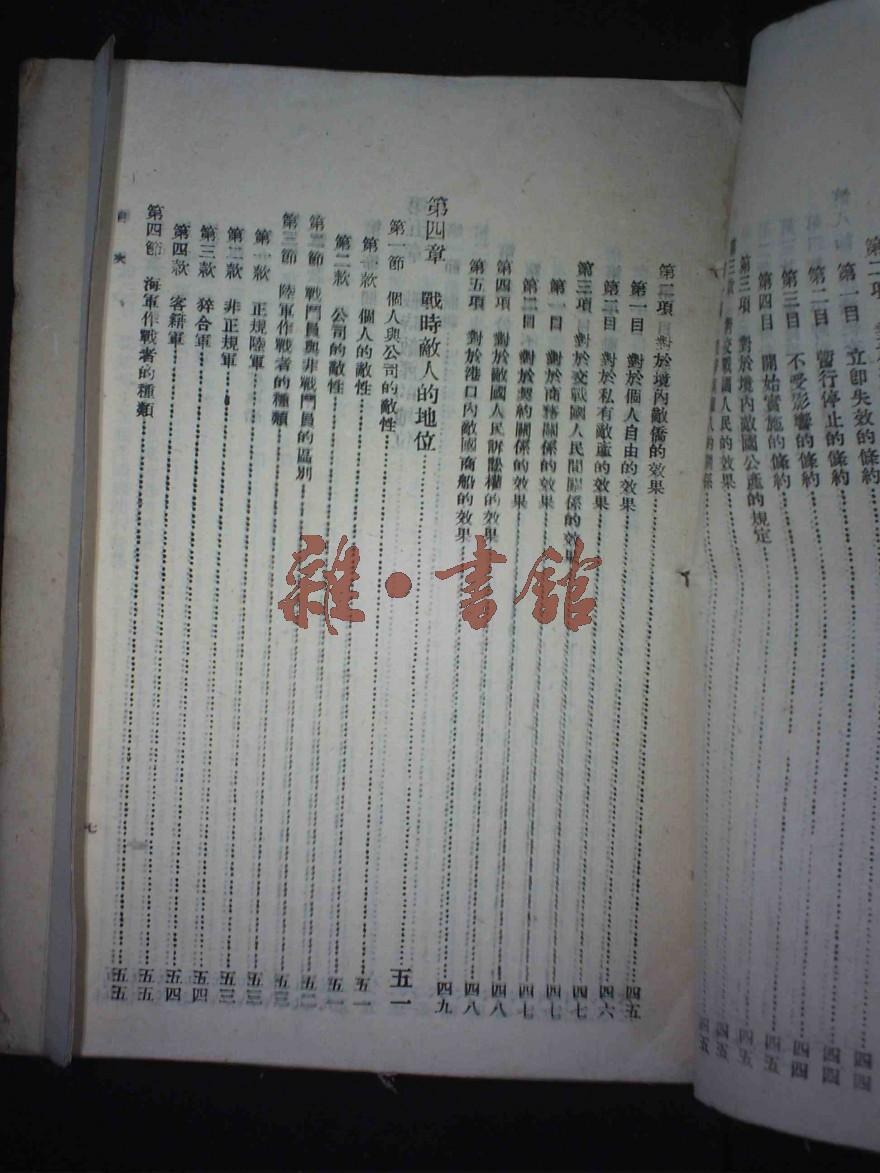 第一目　立即失效的條約
第二目　暫行停止的條約……四四
第三目　不受影響的條約……四四
第四目　開始實施的條約……四五
第三項　對於境內敵國公產的規定……四五
第三款　對交戰國人民的效果……四五
第二項　對於境內敵僑的效果……四五
第一目　對於個人自由的效果……四六
第二目　對於私有敵產的效果……四七
第三項　對於交戰國人民間關係的效果……四七
第一目　對於商務關係的效果……四七
第二目　對於契約關係的效果……四八
第四項　對於敵國人民訴訟權的效果……四八
第五項　對於港口內敵國商船的效果……四九
第四章　戰時敵人的地位……五一
第一節　個人與公司的敵性……五一
第一款　個人的敵性……五一
第二款　公司的敵性……五二
第二節　戰鬥員與非戰鬥員的區別……五三
第三節　陸軍作戰者的種類……五三
第一款　正規陸軍……五三
第二款　非正規軍……五四
第三款　猝合軍……五四
第四款　客籍軍……五五
第四節　海軍作戰者的種類……五五
目次
七
雜·書館